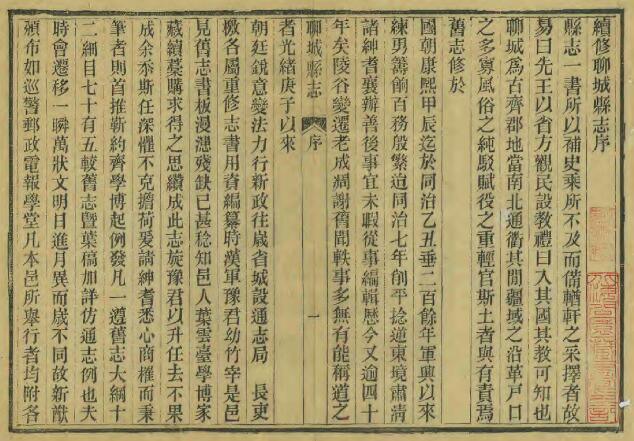 續修聊城縣志序
縣志一書所以補史乘所不及而備輶軒之采擇者故
易曰先王以省方觀民設教禮曰入其國其教可知也
聊城為古齊郡地當南北通衢其間疆域之沿革戶口
之多寡風俗之純駁賦役之重輕官斯土者與有責焉
舊志修於
國朝康熙甲辰迄於同治乙丑垂二百餘年軍興以來
練勇籌餉百務殷繁迨同治七年削平捻逆東境肅清
諸紳耆襄辦善後事宜未暇從事編輯歷今又逾四十
年矣陵谷變遷老成凋謝舊聞軼事多無有能稱道之
聊城縣志
序
一
者光緒庚子以來
朝廷銳意變法力行新政往歲省城設通志局 長吏
檄各屬重修志書用資編纂時漢軍豫君幼竹宰是邑
見舊志書板漫漶殘缺已甚稔知邑人葉雲臺學博家
藏續藁購求得之思續成此志旋豫君以升任去不果
成余忝斯任深懼不克擔荷爰請紳耆悉心商榷而秉
筆者則首推靳約齋學博起例發凡一遵舊志大綱十
二細目七十有五較舊志暨葉稿加詳仿通志例也夫
時會遷移一瞬萬狀文明日進月異而歲不同故新猷
頒布如巡警郵政電報學堂凡本邑所舉行者均附各